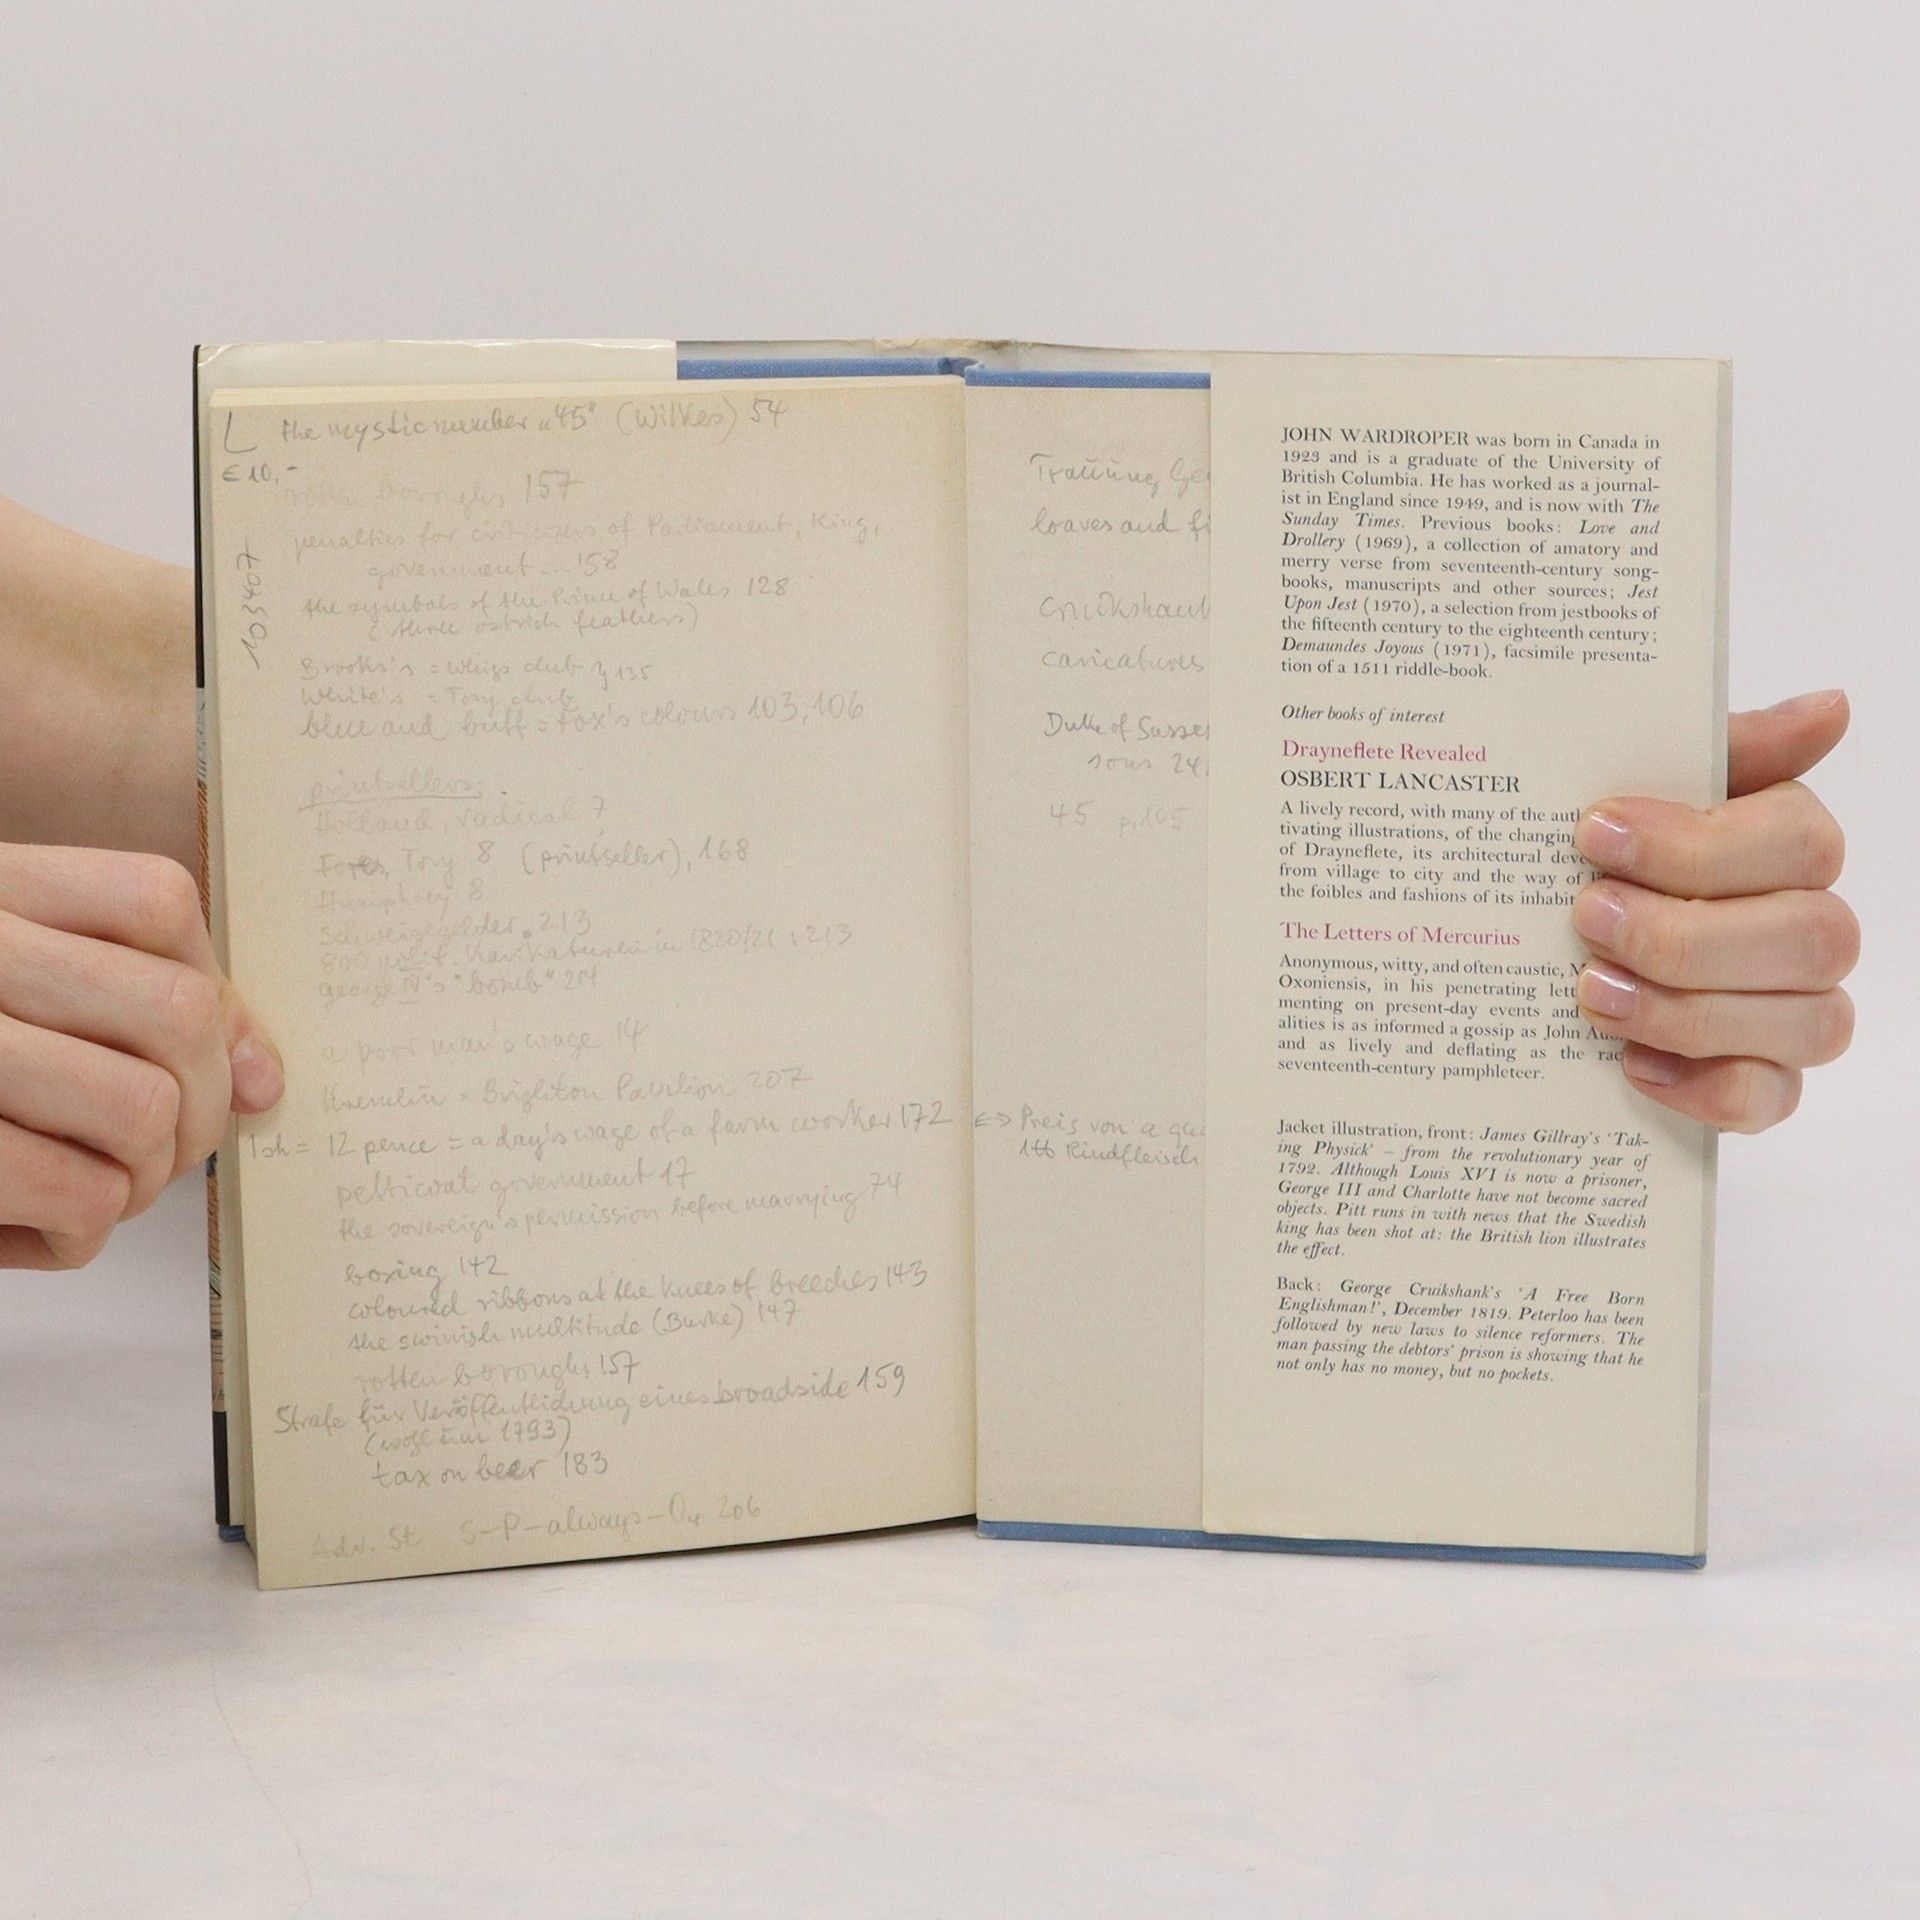 L the mystic number „45" (Wilkes) 54
€10,-
103407
rotten boroughs 157
penalties for criticizers of Parliament, King,
government ... 158
the symbols of the Prince of Wales 128
(three ostrich feathers)
Brooks's = Whigs club } 135
White's = Tory club
blue and buff = Fox's colours 103, 106
printsellers:
Holland, radical 7
Fores, Tory 8 (printseller), 168
Humphrey 8
Schweigegelder 213
800 polit. Karikaturen in 1820/21 : 213
George IV's "bomb" 214
a poor man's wage 14
Kremlin = Brighton Pavilion 207
1 sh = 12 pence = a day's wage of a farm worker 172
petticoat government 17
the sovereign's permission before marrying 74
boxing 142
coloured ribbons at the knees of breeches 143
the swinish multitude (Burke) 147
rotten boroughs 157
Strafe für Veröffentlichung eines broadside 159
(wohl um 1793)
tax on beer 183
Adv. St S-P-always-O4 206
Trauung Ge
loaves and fi
Cruikshank
caricatures
Duke of Susse
sons 24
45 p, 105
<-> Preis von a
1 lb Rindfleisch
JOHN WARDROPER was born in Canada in
1923 and is a graduate of the University of
British Columbia. He has worked as a journal-
ist in England since 1949, and is now with The
Sunday Times. Previous books: Love and
Drollery (1969), a collection of amatory and
merry verse from seventeenth-century song-
books, manuscripts and other sources; Jest
Upon Jest (1970), a selection from jestbooks of
the fifteenth century to the eighteenth century;
Demaundes Joyous (1971), facsimile presenta-
tion of a 1511 riddle-book.
Other books of interest
Drayneflete Revealed
OSBERT LANCASTER
A lively record, with many of the aut
tivating illustrations, of the changing
of Drayneflete, its architectural deve
from village to city and the way of
the foibles and fashions of its inhabit
The Letters of Mercurius
Anonymous, witty, and often caustic, M
Oxoniensis, in his penetrating lett
menting on present-day events and
alities is as informed a gossip as John Au
and as lively and deflating as the rac
seventeenth-century pamphleteer.
Jacket illustration, front: James Gillray's 'Tak-
ing Physick' – from the revolutionary year of
1792. Although Louis XVI is now a prisoner,
George III and Charlotte have not become sacred
objects. Pitt runs in with news that the Swedish
king has been shot at: the British lion illustrates
the effect.
Back: George Cruikshank's 'A Free Born
Englishman!', December 1819. Peterloo has been
followed by new laws to silence reformers. The
man passing the debtors' prison is showing that he
not only has no money, but no pockets.